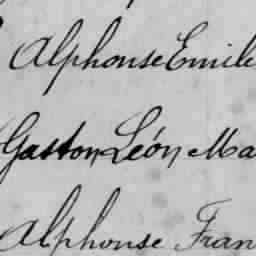 Alphonse Emile
Gaston Léon Ma
Alphonse Fran